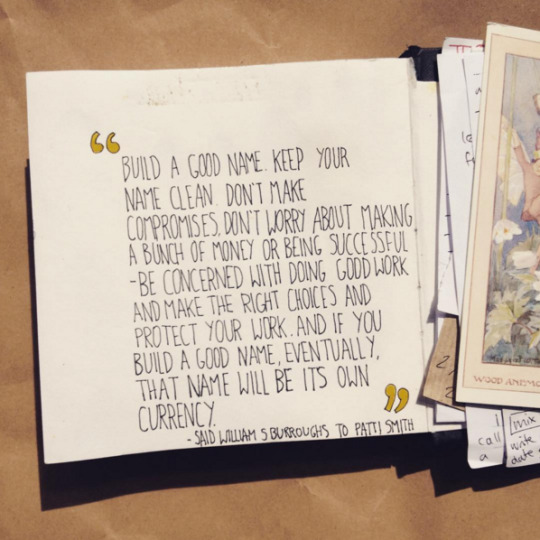 “
BUILD A GOOD NAME. KEEP YOUR
NAME CLEAN. DON'T MAKE
COMPROMISES, DON'T WORRY ABOUT MAKING
A BUNCH OF MONEY OR BEING SUCCESSFUL
-BE CONCERNED WITH DOING GOOD WORK
AND MAKE THE RIGHT CHOICES AND
PROTECT YOUR WORK. AND IF YOU
BUILD A GOOD NAME, EVENTUALLY,
THAT NAME WILL BE ITS OWN
CURRENCY.
”
- SAID WILLIAM S BURROUGHS TO PATTI SMITH
WOOD
call
a
mix
write
date